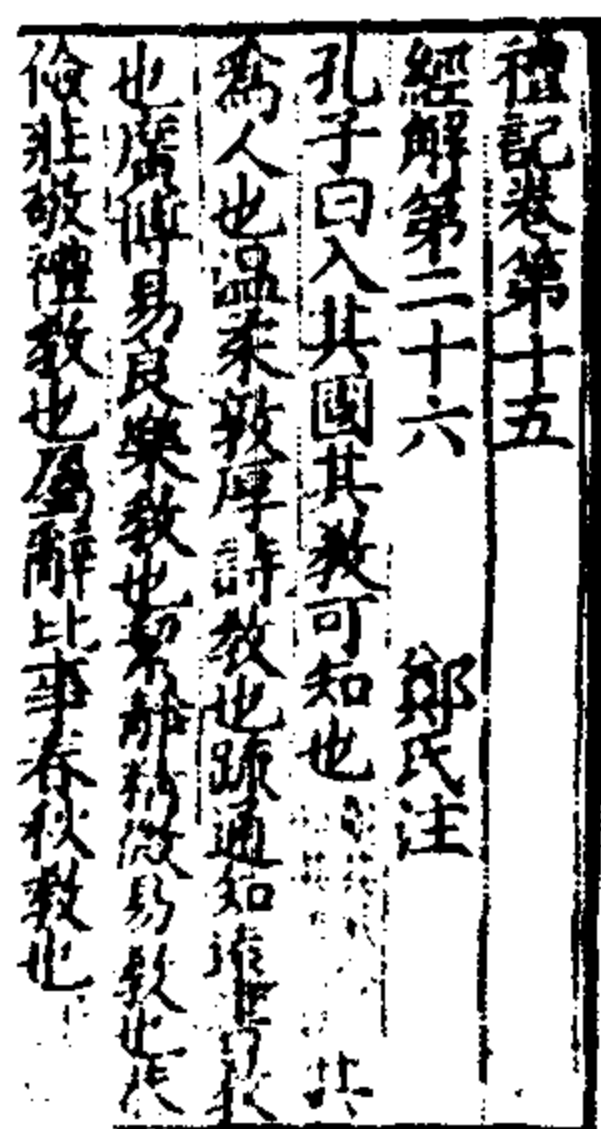 禮記卷第十五
經解第二十六 鄭氏注
孔子曰入其國其教可知也 其
爲人也溫柔敦厚詩教也疏通知遠書教
也廣博易良樂教也絜靜精微易教也恭
儉莊敬禮教也屬辭比事春秋教也